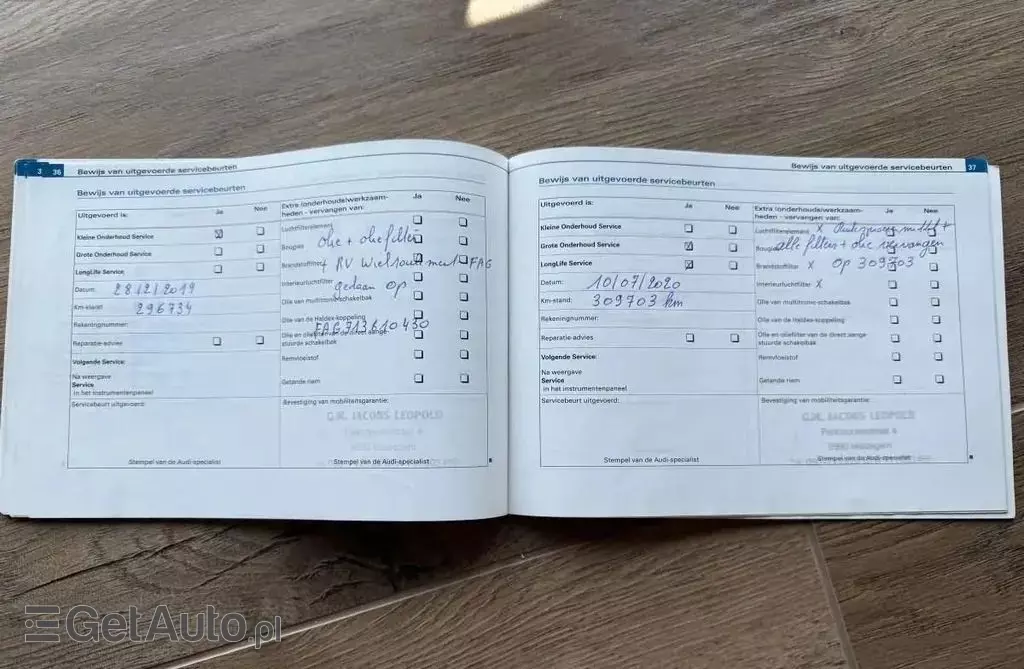 3 36 Bewijs van uitgevoerde servicebeurten
Bewijs van uitgevoerde servicebeurten
Uitgevoerd is: Ja Nee
Extra (onderhouds)werkzaam-
heden - vervangen van: Ja Nee
Kleine Onderhoud Service
Grote Onderhoud Service
LongLife Service
Datum: 28/12/2019
Km-stand: 296734
Rekeningnummer:
Reparatie-advies
Volgende Service:
Na weergave
Service
in het instrumentenpaneel
Luchtfilterelement
Bougies olie + oliefilter
Brandstoffilter + RV Wiel
Interieurluchtfilter gedaan op
Olie van multitronic-schakelbak
Olie van de Haldex-koppeling
FAG713610430
Olie en oliefilter van de direct aange-
stuurde schakelbak
Remvloeistof
Getande riem
Servicebeurt uitgevoerd:
Bevestiging van mobiliteitsgarantie:
G.M. JACOBS LEOPOLD
Stempel van de Audi-specialist
Stempel van de Audi-specialist
Bewijs van uitgevoerde servicebeurten 37
Bewijs van uitgevoerde servicebeurten
Uitgevoerd is: Ja Nee
Extra (onderhouds)werkzaam-
heden - vervangen van: Ja Nee
Kleine Onderhoud Service
Grote Onderhoud Service
LongLife Service
Datum: 10/07/2020
Km-stand: 309703 km
Rekeningnummer:
Reparatie-advies
Volgende Service:
Na weergave
Service
in het instrumentenpaneel
Luchtfilterelement X
Bougies alle filters + olie vervangen
Brandstoffilter X Op 309703
Interieurluchtfilter X
Olie van multitronic-schakelbak
Olie van de Haldex-koppeling
Olie en oliefilter van de direct aange-
stuurde schakelbak
Remvloeistof
Getande riem
Servicebeurt uitgevoerd:
Bevestiging van mobiliteitsgarantie:
G.M. JACOBS LEOPOLD
Stempel van de Audi-specialist
Stempel van de Audi-specialist
GetAuto.pl